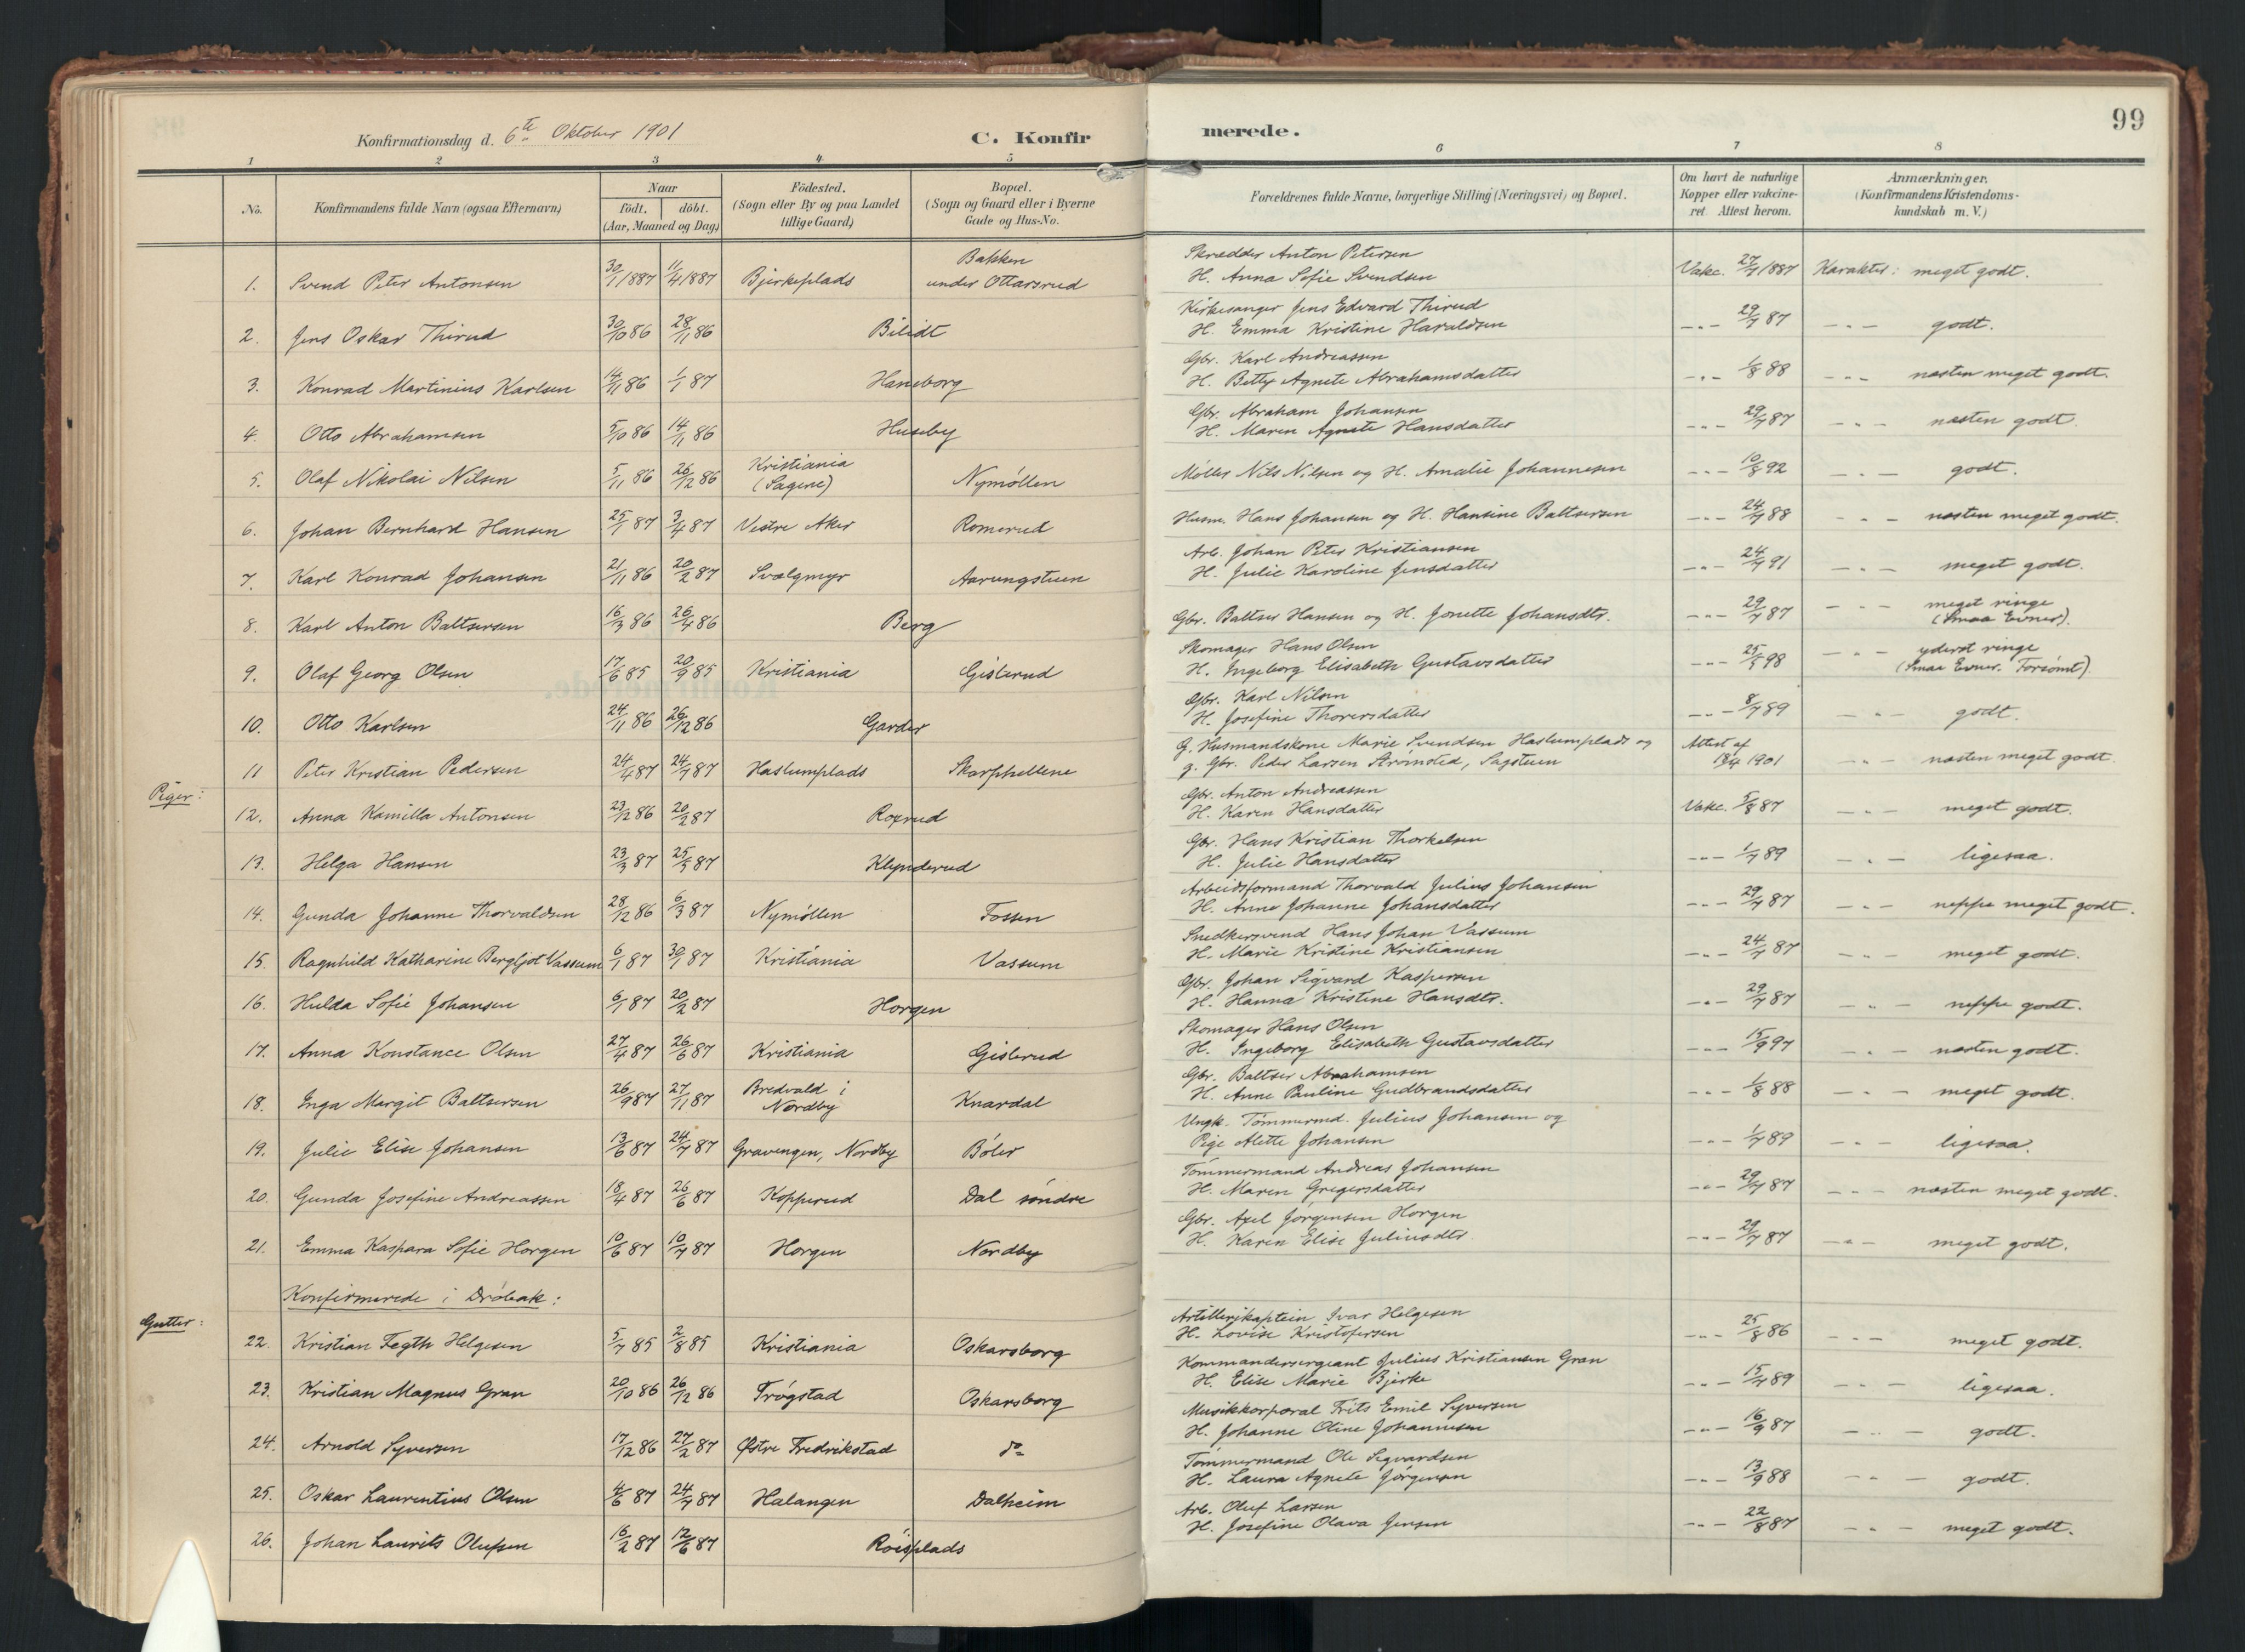 99
Konfirmationsdag d. 6te Oktober 1901
C. Konfir
merede.
1 2 3 4 5 6 7 8
No.
Konfirmandens fulde Navn (ogsaa Efternavn)
Naar
födt. döbt.
(Aar, Maaned og Dag)
Födested.
(Sogn eller By og paa Landet
tillige Gaard)
Bopæl.
(Sogn og Gaard eller i Byerne
Gade og Hus-No.
Forældrenes fulde Navne, borgerlige Stilling (Næringsvei) og Bopæl.
Om havt de naturlige
Kopper eller vakcine-
ret. Attest herom.
Anmærkninger.
(Konfirmandens Kristendoms-
kundskab m. V.)
1. Svend Peter Antonsen 30/1 1887 11/4 1887 Bjerkeplads Bakken
under Ottarsrud
Skrædder Anton Petersen
H. Anna Sofie Svendsen
Vakc. 27/7 1887 Karakter: meget godt.
2. Jens Oskar Thirud 30/10 86 28/11 86 Bilidt
Kirkesanger Jens Edvard Thirud
H. Emma Kristine Haraldsen
-"- 29/7 87 -"- godt.
3. Konrad Martinius Karlsen 14/11 86 1/1 87 Haneborg
Gbr. Karl Andreassen
H. Betty Agnete Abrahamsdatter
-"- 1/8 88 -"- næsten meget godt.
4. Otto Abrahamsen 5/10 86 14/11 86 Huseby
Gbr. Abraham Johansen
H. Maren Agnete Hansdatter
-"- 29/7 87 -"- næsten godt.
5. Olaf Nikolai Nilsen 5/11 86 26/12 86 Kristiania
(Sagene) Nymöllen
Möller Nils Nilsen og H. Amalie Johannesen
-"- 10/8 92 -"- godt.
6. Johan Bernhard Hansen 25/1 87 3/4 87 Vestre Aker Romerud
Husm. Hans Johansen og H. Hansine Baltsersen
-"- 24/7 88 -"- næsten meget godt.
7. Karl Konrad Johansen 21/11 86 20/2 87 Svælgmyr Aarungstuen
Arb. Johan Peter Kristiansen
H. Julie Karoline Jensdatter
-"- 24/7 91 -"- meget godt.
8. Karl Anton Baltsersen 16/3 86 26/4 86 Berg
Gbr. Baltser Hansen og H. Jonette Johansdtr.
-"- 29/7 87 -"- meget ringe
(Smaa Evner).
9. Olaf Georg Olsen 17/6 85 20/9 85 Kristiania Gislerud
Skomager Hans Olsen
H. Ingeborg Elisabeth Gustavsdatter
-"- 25/5 98 -"- yderst ringe
(Smaa Evner. Forsömt).
10. Otto Karlsen 24/11 86 26/12 86 Garder
Gbr. Karl Nilsen
H. Josefine Thoversdatter
-"- 8/7 89 -"- godt.
11 Peter Kristian Pedersen 24/4 87 24/7 87 Haslumplads Skorphellene
G. Husmandskone Marie Svendsen Haslumplads og
g. Gbr. Peder Larsen Strömsted, Sagstuen
Attest af
18/4 1901 -"- næsten meget godt.
Piger:
12. Anna Kamilla Antonsen 23/12 86 20/2 87 Roxrud
Gbr. Anton Andreassen
H. Karen Hansdatter
Vakc. 5/8 87 -"- meget godt.
13. Helga Hansen 23/3 87 25/5 87 Klynderud
Gbr. Hans Kristian Thorkelsen
H. Julie Hansdatter
-"- 1/7 89 -"- ligesaa.
14. Gunda Johanne Thorvaldsen 28/12 86 6/3 87 Nymöllen Fossen
Arbeidsformand Thorvald Julius Johansen
H. Anne Johanne Johansdatter
-"- 29/7 87 -"- neppe meget godt.
15. Ragnhild Katharine Bergljot Vassum 6/1 87 30/1 87 Kristiania Vassum
Snedkersvend Hans Johan Vassum
H. Marie Kristine Kristiansen
-"- 24/7 87 -"- meget godt.
16. Hulda Sofie Johansen 6/1 87 20/2 87 Horgen
Gbr. Johan Sigvard Kaspersen
H. Hanna Kristine Hansdtr.
-"- 29/7 87 -"- neppe godt.
17. Anna Konstance Olsen 27/4 87 26/6 87 Kristiania Gislerud
Skomager Hans Olsen
H. Ingeborg Elisabeth Gustavsdatter
-"- 15/9 97 -"- næsten godt.
18. Inga Margit Baltsersen 26/9 87 27/11 87 Bredvald i
Nordby Knardal
Gbr. Baltser Abrahamsen
H. Anne Pauline Gudbrandsdatter
-"- 1/8 88 -"- meget godt.
19. Julie Elise Johansen 13/6 87 24/7 87 Gravengen, Nordby Böler
Ungk. Tömmermd. Julius Johansen og
Pige Alette Johansen
-"- 1/7 89 -"- ligesaa.
20. Gunda Josefine Andreassen 18/4 87 26/6 87 Kopperud Dal söndre
Tömmermand Andreas Johansen
H. Maren Gregersdatter
-"- 29/7 87 -"- næsten meget godt.
21. Emma Kaspara Sofie Horgen 10/6 87 10/7 87 Horgen Nordby
Gbr. Axel Jörgensen Horgen
H. Karen Elise Juliusdtr
-"- 29/7 87 -"- meget godt.
Konfirmerede i Dröbak:
Gutter:
22. Kristian Tegth Helgesen 5/7 85 2/8 85 Kristiania Oskarsborg
Artillerikaptein Ivar Helgesen
H. Lovise Kristofersen
-"- 25/8 86 -"- meget godt.
23. Kristian Magnus Gran 20/10 86 26/12 86 Trögstad Oskarsborg
Kommandersergeant Julius Kristiansen Gran
H. Elise Marie Bjerke
-"- 15/7 89 -"- ligesaa.
24. Arnold Syversen 17/12 86 27/2 87 Østre Fredrikstad do
Musikkorporal Frits Emil Syversen
H. Johanne Oline Johannesen
-"- 16/9 87 -"- godt.
25. Oskar Laurentius Olsen 4/6 87 24/7 87 Halangen Dalheim
Tömmermand Ole Sigvardsen
H. Laura Agnete Jörgensen
-"- 13/9 88 -"- godt.
26. Johan Laurits Olufsen 16/2 87 12/6 87 Röisplads
Arb. Oluf Larsen
H. Josefine Olava Jensen
-"- 22/8 87 -"- meget godt.